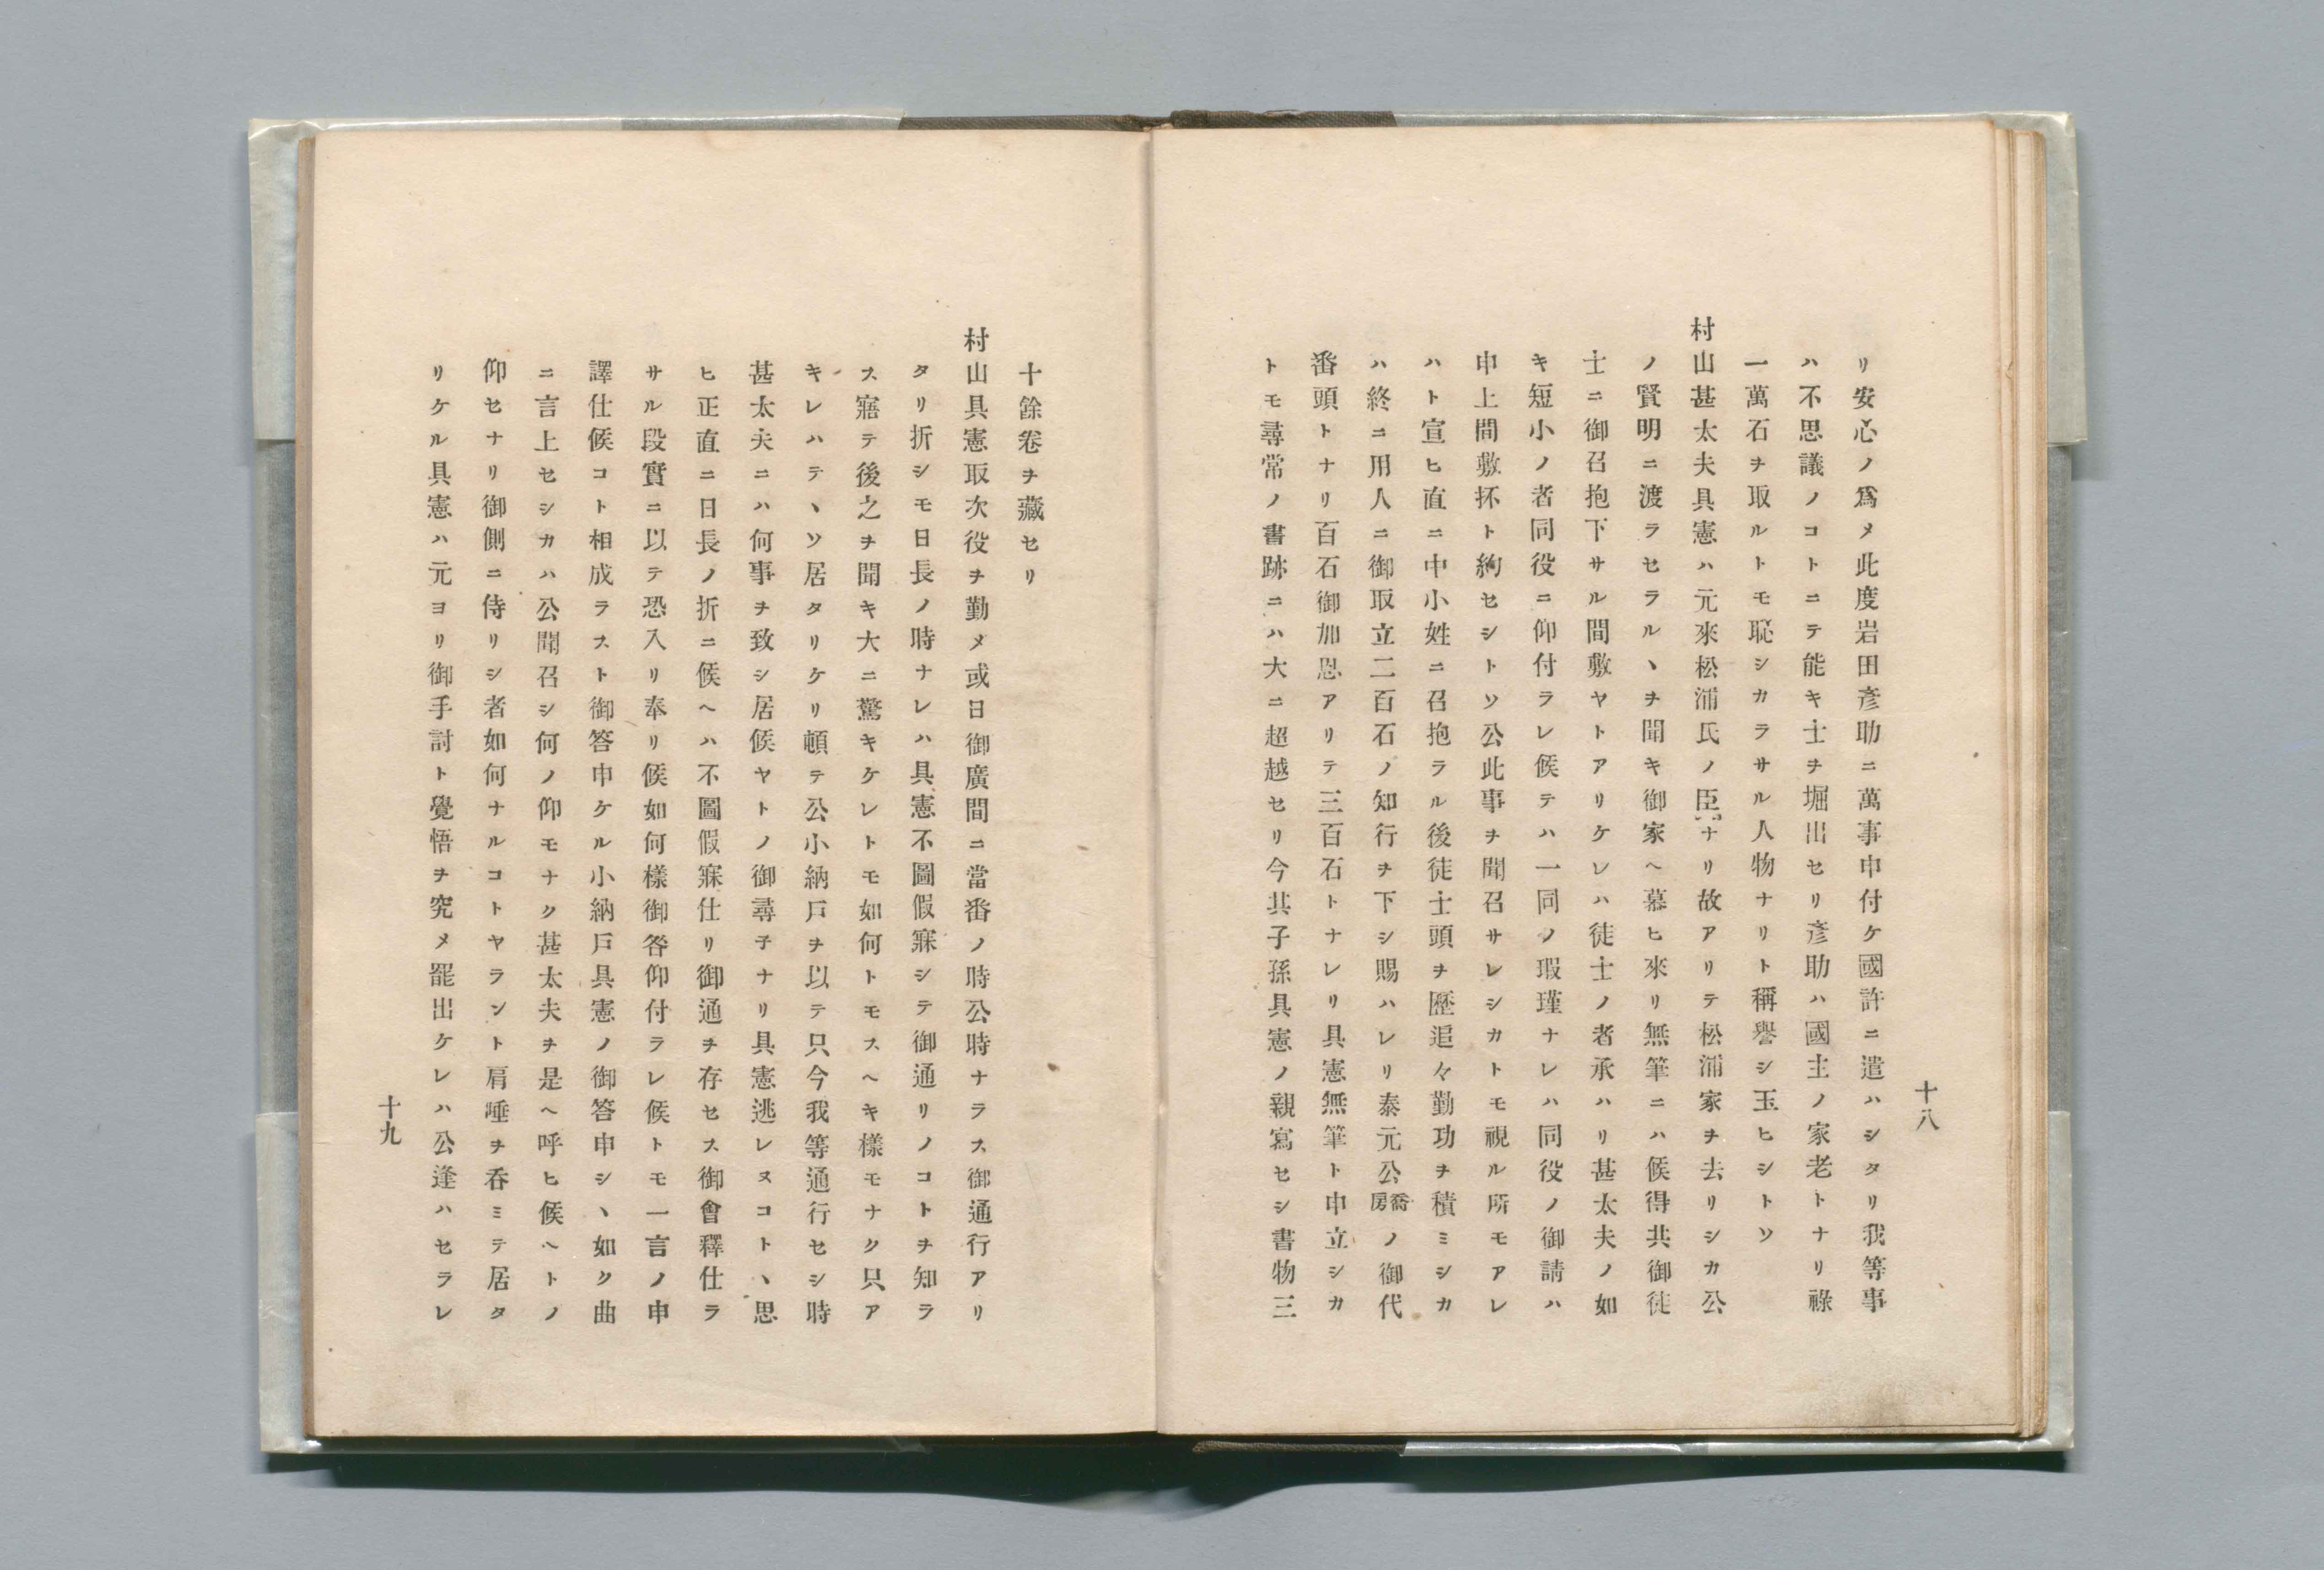 十八
リ安心ノ爲メ此度岩田彥助ニ萬事申付ケ國許ニ遣ハシタリ我等事
ハ不思議ノコトニテ能キ士ヲ堀出セリ彥助ハ國主ノ家老トナリ祿
一萬石ヲ取ルトモ恥シカラサル人物ナリト稱譽シ玉ヒシトソ
村山甚太夫具憲ハ元來松浦氏ノ臣ナリ故アリテ松浦家ヲ去リシカ公
ノ賢明ニ渡ラセラルヽヲ聞キ御家ヘ慕ヒ來リ無筆ニハ候得共御徒
士ニ御召抱下サル間敷ヤトアリケレハ徒士ノ者承ハリ甚太夫ノ如
キ短小ノ者同役ニ仰付ラレ候テハ一同ノ瑕瑾ナレハ同役ノ御請ハ
申上間敷抔ト絢セシトソ公此事ヲ聞召サレシカトモ視ル所モアレ
ハト宣ヒ直ニ中小姓ニ召抱ラル後徒士頭ヲ歷追々勤功ヲ積ミシカ
ハ終ニ用人ニ御取立二百石ノ知行ヲ下シ賜ハレリ泰元公喬房ノ御代
番頭トナリ百石御加恩アリテ三百石トナレリ具憲無筆ト申立シカ
トモ尋常ノ書跡ニハ大ニ超越セリ今其子孫具憲ノ親寫セシ書物三
十餘卷ヲ藏セリ
村山具憲取次役ヲ勤メ或日御廣間ニ當番ノ時公時ナラス御通行アリ
タリ折シモ日長ノ時ナレハ具憲不圖假寐シテ御通リノコトヲ知ラ
ス寤テ後之ヲ聞キ大ニ驚キケレトモ如何トモスヘキ樣モナク只ア
キレハテヽソ居タリケリ頓テ公小納戶ヲ以テ只今我等通行セシ時
甚太夫ニハ何事ヲ致シ居候ヤトノ御尋子ナリ具憲逃レヌコトヽ思
ヒ正直ニ日長ノ折ニ候ヘハ不圖假寐仕リ御通ヲ存セス御會釋仕ラ
サル段實ニ以テ恐入リ奉リ候如何樣御咎仰付ラレ候トモ一言ノ申
譯仕候コト相成ラスト御答申ケル小納戶具憲ノ御答申シヽ如ク曲
ニ言上セシカハ公聞召シ何ノ仰モナク甚太夫ヲ是ヘ呼ヒ候ヘトノ
仰セナリ御側ニ侍リシ者如何ナルコトヤラント肩唾ヲ呑ミテ居タ
リケル具憲ハ元ヨリ御手討ト覺悟ヲ究メ罷出ケレハ公逢ハセラレ
十九